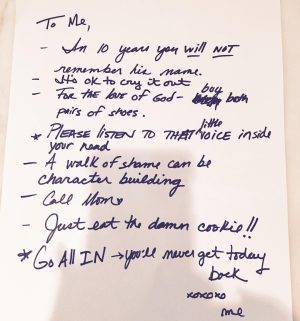 To Me,
- In 10 years you will NOT
remember his name.
- It's ok to cry it out
- For the love of God - buy both
pairs of shoes.
* PLEASE LISTEN TO THAT little VOICE inside
your head
- A walk of shame can be
character building
- Call Mom ♥
- Just eat the damn cookie!!
* Go All IN → you'll never get today
back
xoxoxo
me